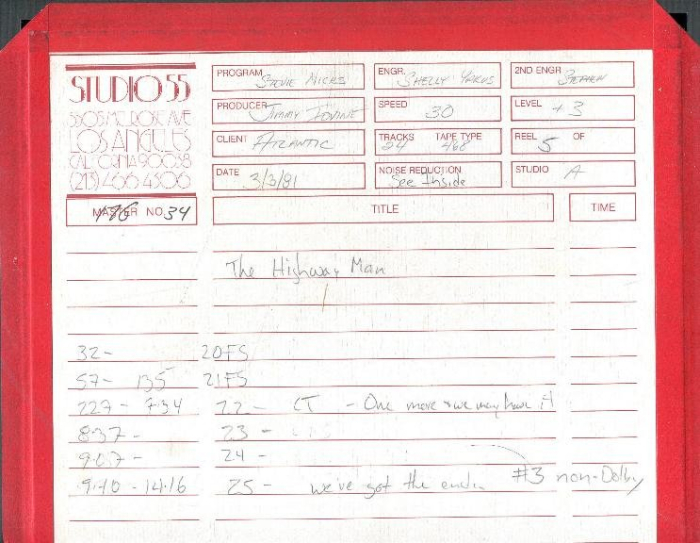 STUDIO 55
5505 MELROSE AVE
LOS ANGELES
CALIFORNIA 90038
(213) 466 4506
PROGRAM Stevie Nicks
ENGR. Shelly Yakus
2ND ENGR Stephen
PRODUCER Jimmy Iovine
SPEED 30
LEVEL +3
CLIENT Atlantic
TRACKS 24 TAPE TYPE 468
REEL 5 OF
DATE 3/3/81
NOISE REDUCTION See Inside
STUDIO A
MASTER NO. 34
TITLE
TIME
The Highway Man
32 - 20FS
57 - 135 21FS
227 - 734 22 - CT - One more & we may have it
837 - 23 -
24 -
940 - 1416 25 - we've got the end. #3 non-Dolby